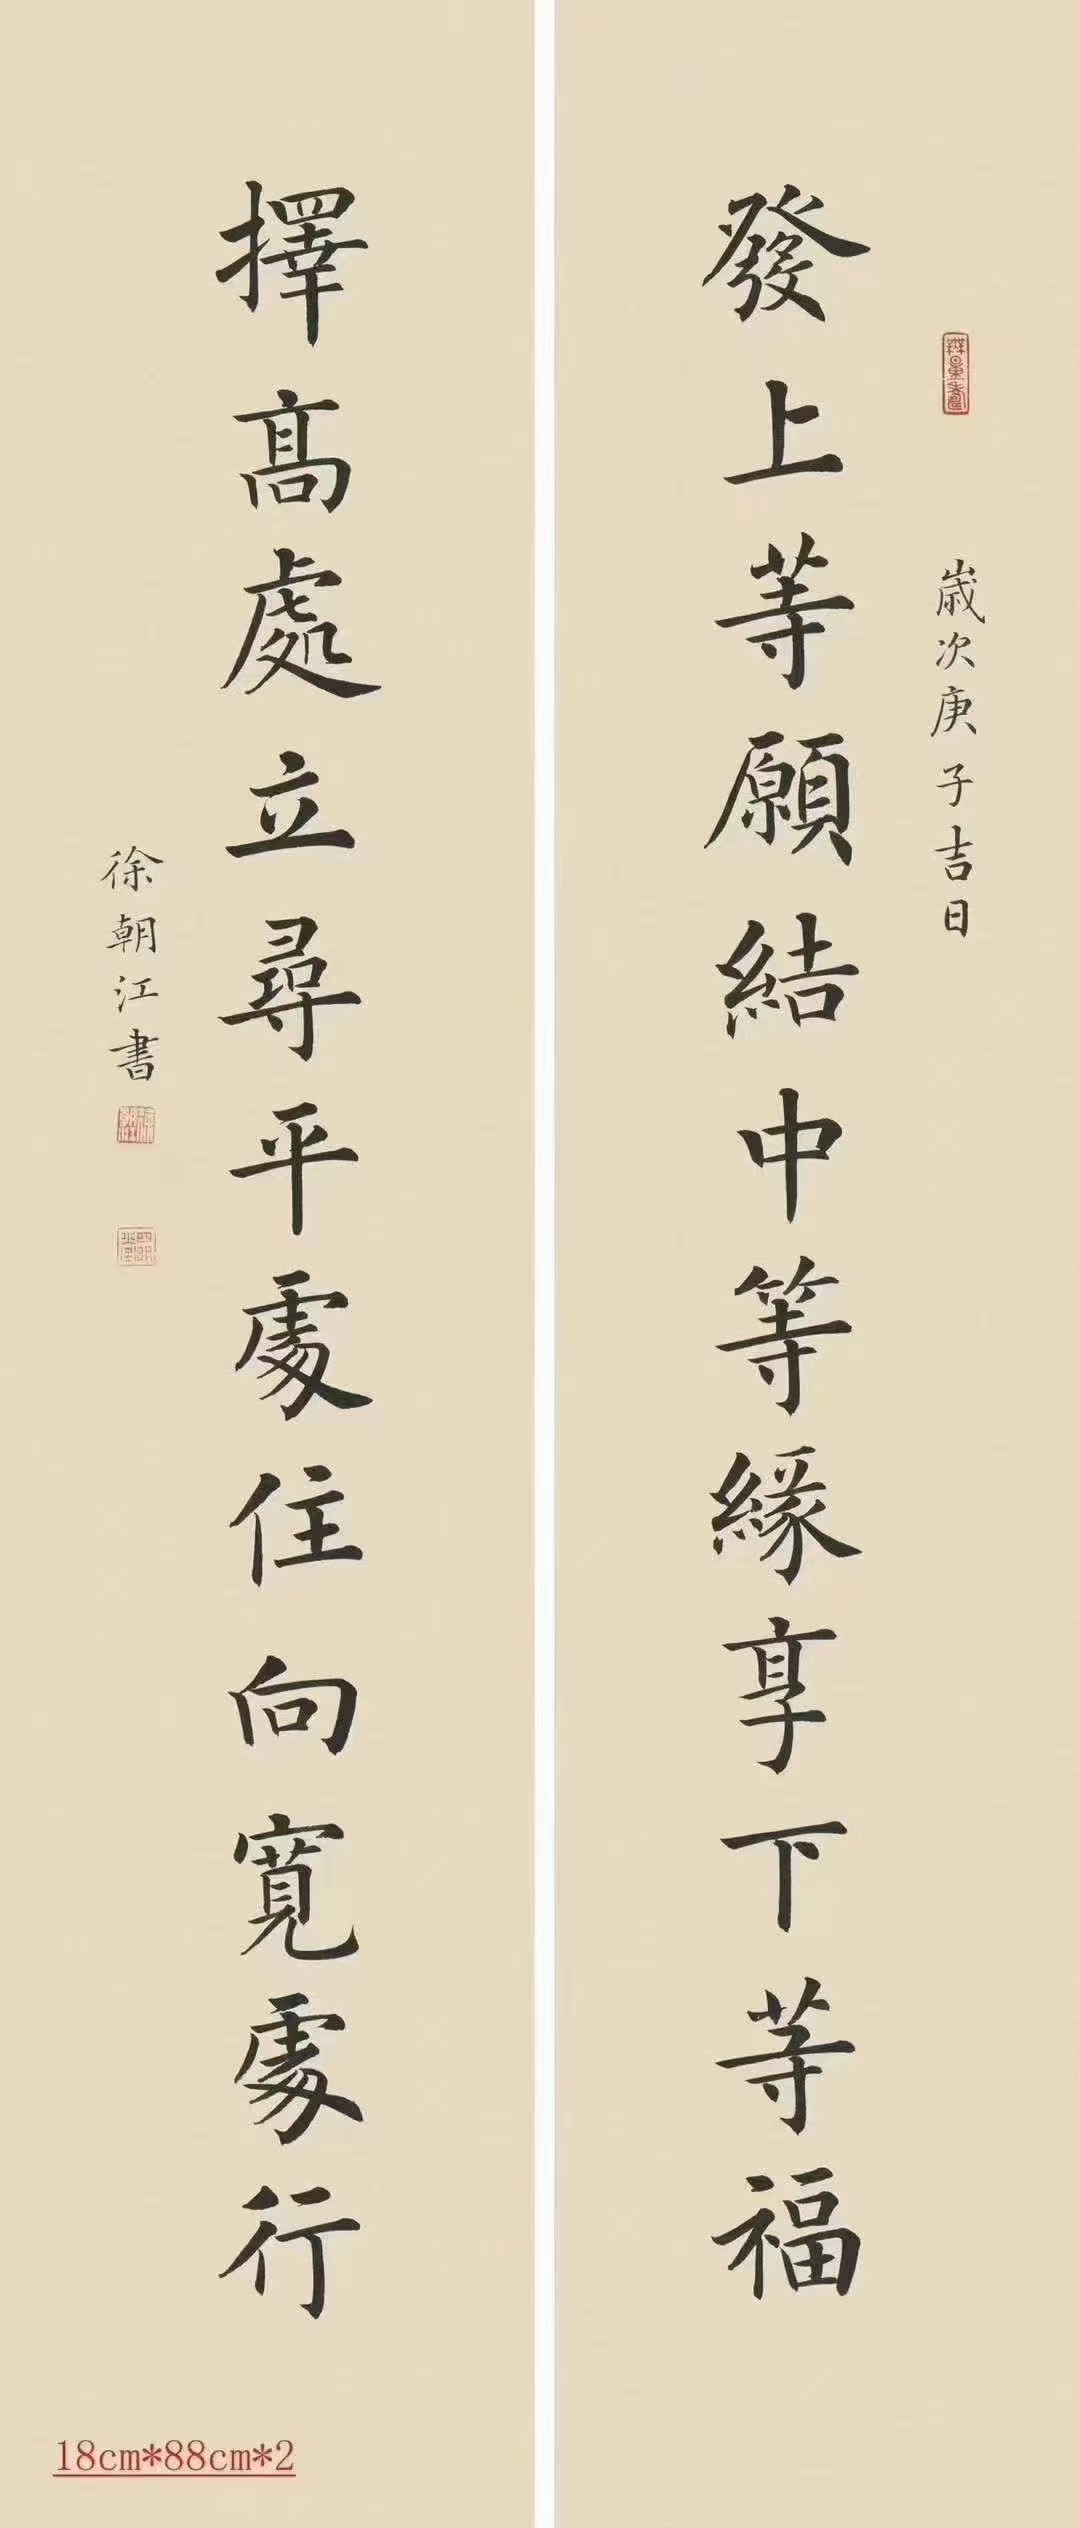 發上等願結中等緣享下等福
歲次庚子吉日
擇高處立尋平處住向寬處行
徐朝江書
18cm*88cm*2